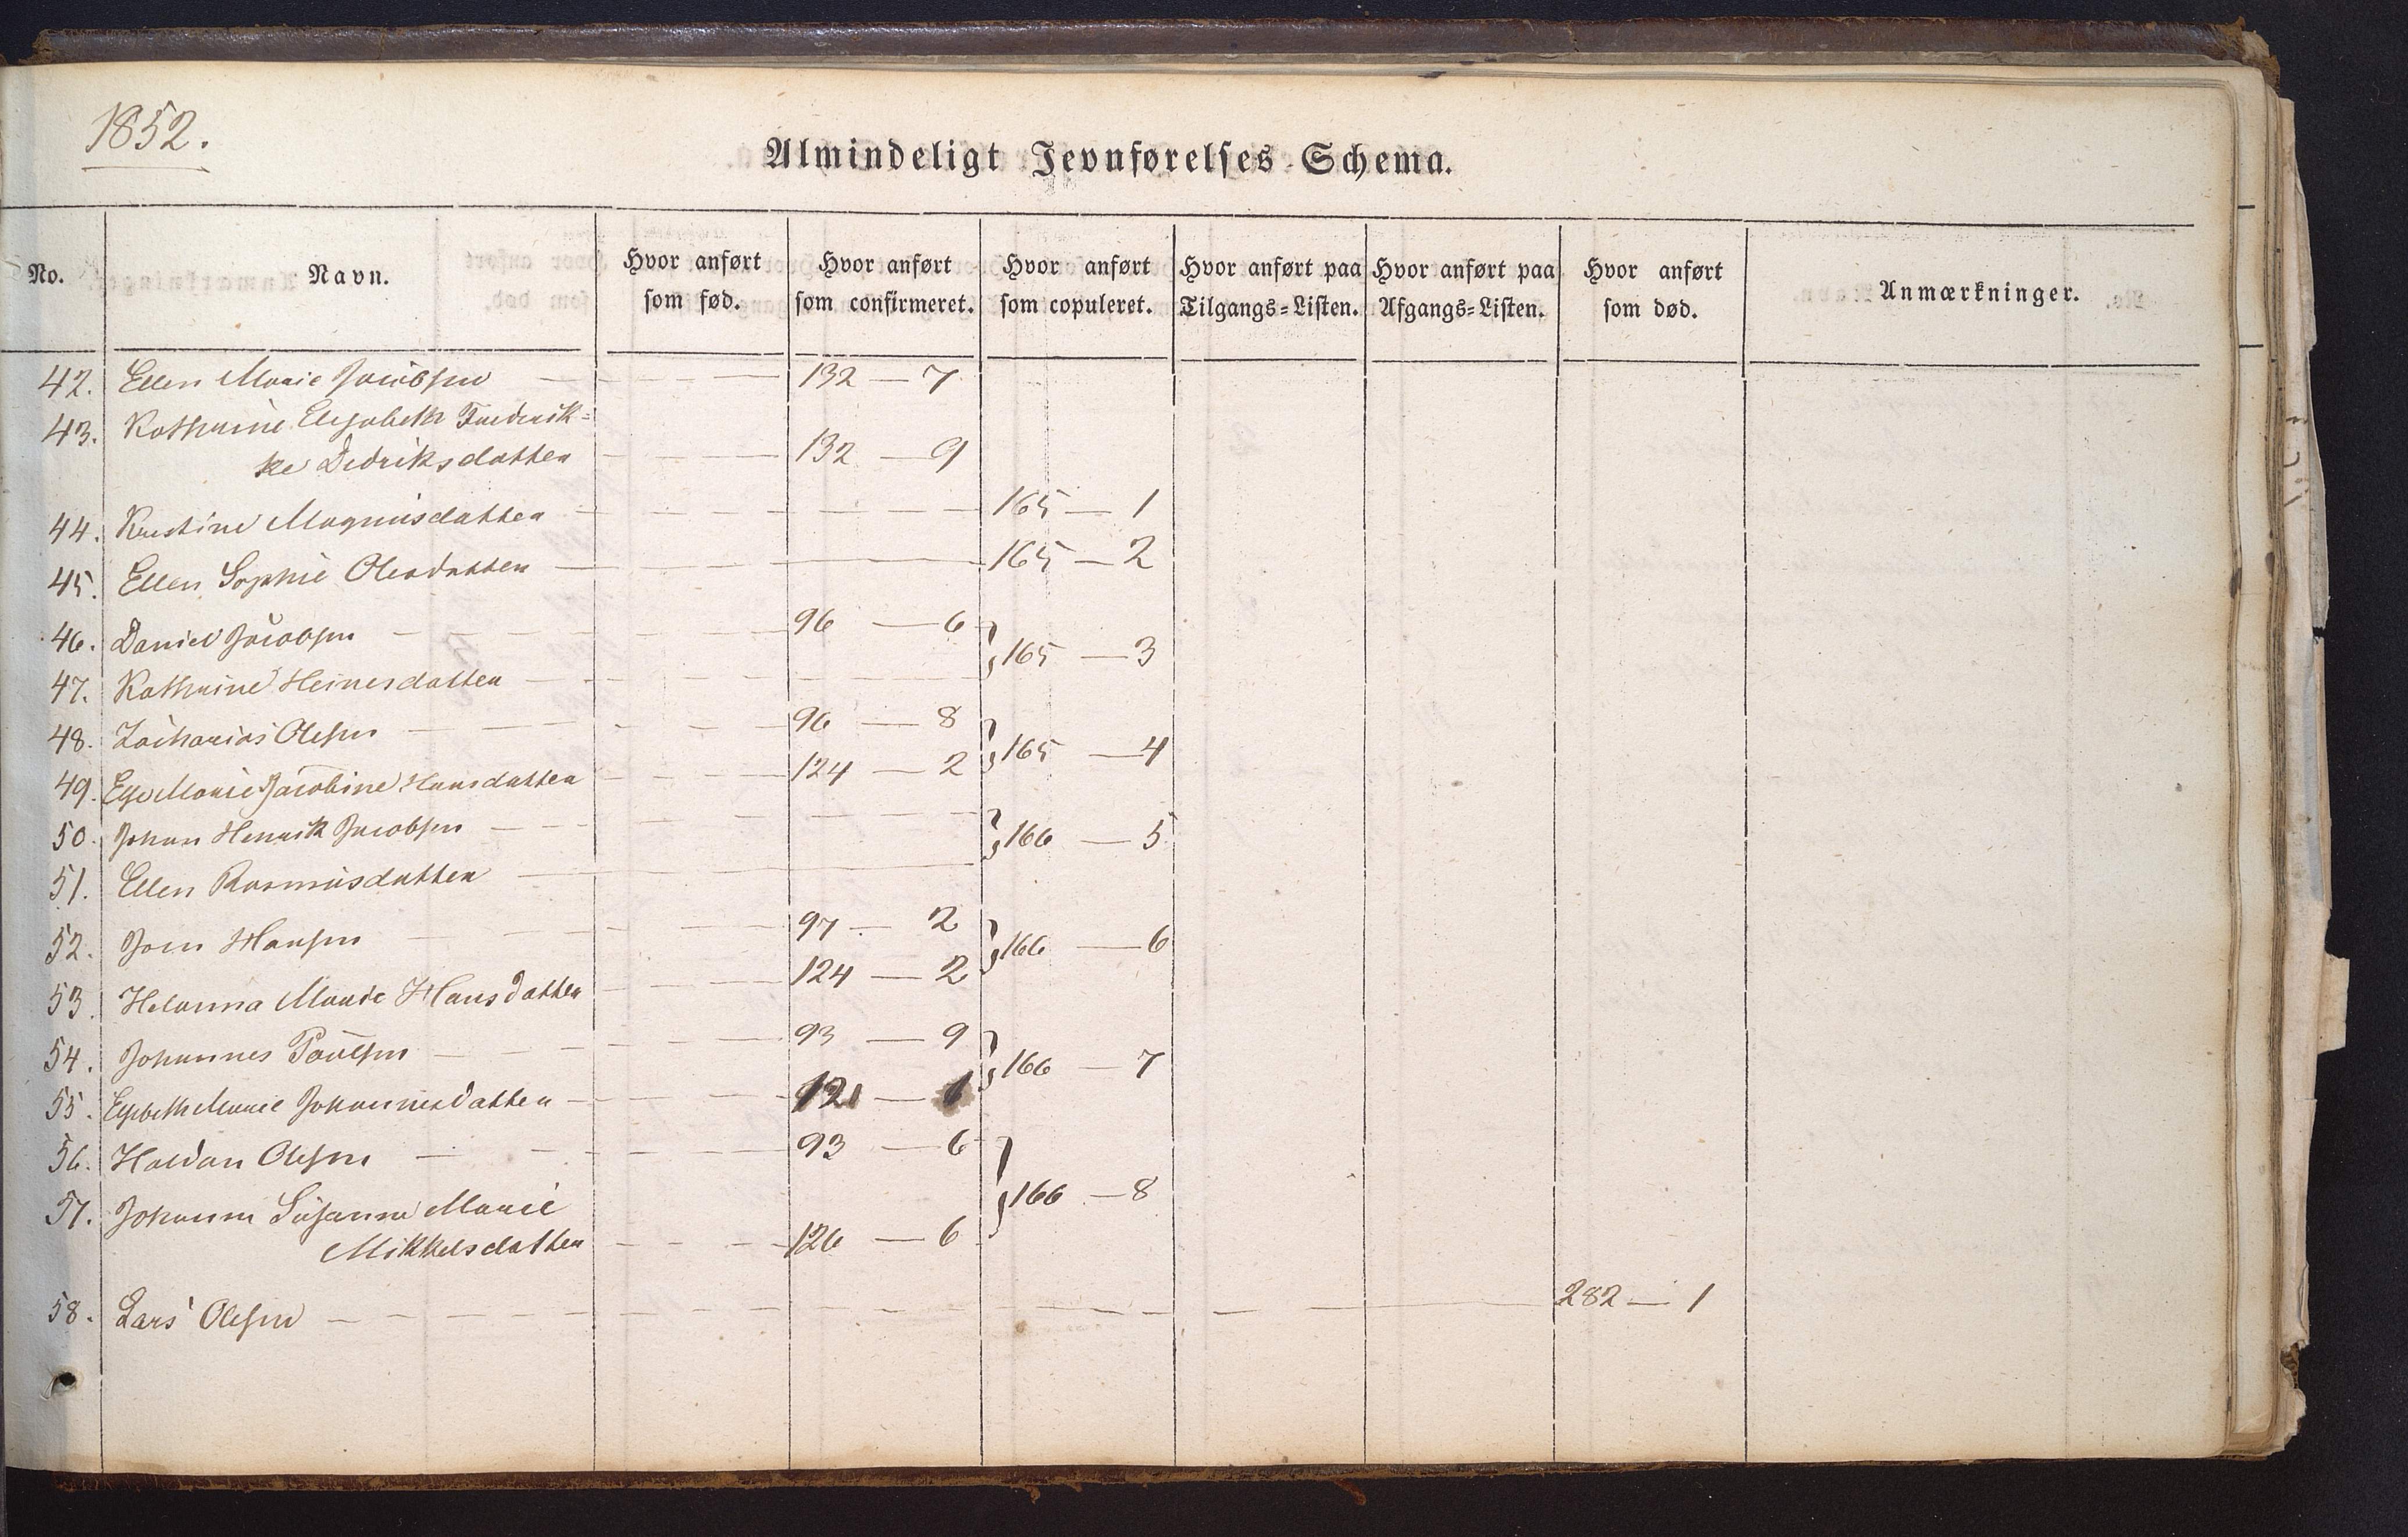 1852.
Almindeligt Jevnførelses-Schema.
No. Navn. Hvor anført som fød. Hvor anført som confirmeret. Hvor anført som copuleret. Hvor anført paa Tilgangs=Listen. Hvor anført paa Afgangs=Listen. Hvor anført som død. Anmærkninger.
42. Ellen Marie Jacobsen — 132 — 7
43. Kathrine Elisabeth Frederik=
ke Didriksdatter — 132 — 9
44. Kristine Magnusdatter — 165 — 1
45. Ellen Sophie Olesdatter — 165 — 2
46. Daniel Jacobsen — 96 — 6
} 165 — 3
47. Kathrine Heinesdatter —
48. Zacharias Olesen — 96 — 8
} 165 — 4
49. Else Marie Jacobine Hansdatter — 124 — 2
50. Johan Henrik Jacobsen —
} 166 — 5
51. Ellen Rasmusdatter —
52. Joen Hansen — 97 — 2
} 166 — 6
53. Helanna Marie Hansdatter — 124 — 2
54. Johannes Poulsen — 93 — 9
} 166 — 7
55. Elsbeth Marie Johannesdatter — 121 — 1
56. Haldan Olesen — 93 — 6
} 166 — 8
57. Johanne Susanne Marie
Mikkelsdatter — 126 — 6
58. Lars Olesen — 282 — 1